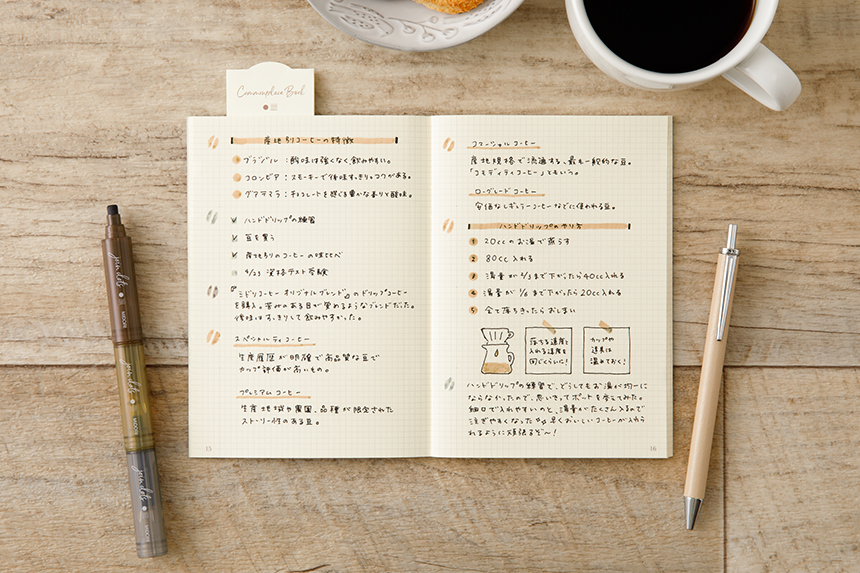 Commonplace Book
産地別コーヒーの特徴
ブラジル：酸味は強くなく飲みやすい。
コロンビア：スモーキーで後味すっきり。コクがある。
グアテマラ：チョコレートを感じる豊かな香りと酸味。
ハンドドリップの練習
豆を買う
産地別のコーヒーの味比べ
4/23 資格テスト受験
『ミドリコーヒー オリジナルブレンド』のドリップコーヒー
を購入。苦みのある目が覚めるようなブレンドだった。
後味はすっきりして飲みやすかった。
スペシャルティコーヒー
生産履歴が明確で高品質な豆で
カップ評価が高いもの。
プレミアムコーヒー
生産地域や農園、品種が限定された
ストーリー性のある豆。
15
コマーシャルコーヒー
産地規格で流通する、最も一般的な豆。
「コモディティコーヒー」ともいう。
ローグレードコーヒー
安価なレギュラーコーヒーなどに使われる豆。
ハンドドリップのやり方
1 20ccのお湯で蒸らす
2 80cc入れる
3 湯量が2/3まで下がったら40cc入れる
4 湯量が1/2まで下がったら20cc入れる
5 全て落ちきったらおしまい
落ちる速度と
入れる速度を
同じくらいに！
カップや
道具は
温めておく！
ハンドドリップの練習で、どうしてもお湯が均一に
ならなかったので、思いきってポットを変えてみた。
細口で入れやすいのと、湯量がたくさん入るので
注ぎやすくなった 早くおいしいコーヒーが入れら
れるように頑張るぞ〜！
16
MIDORI
MIDORI
MIDORI